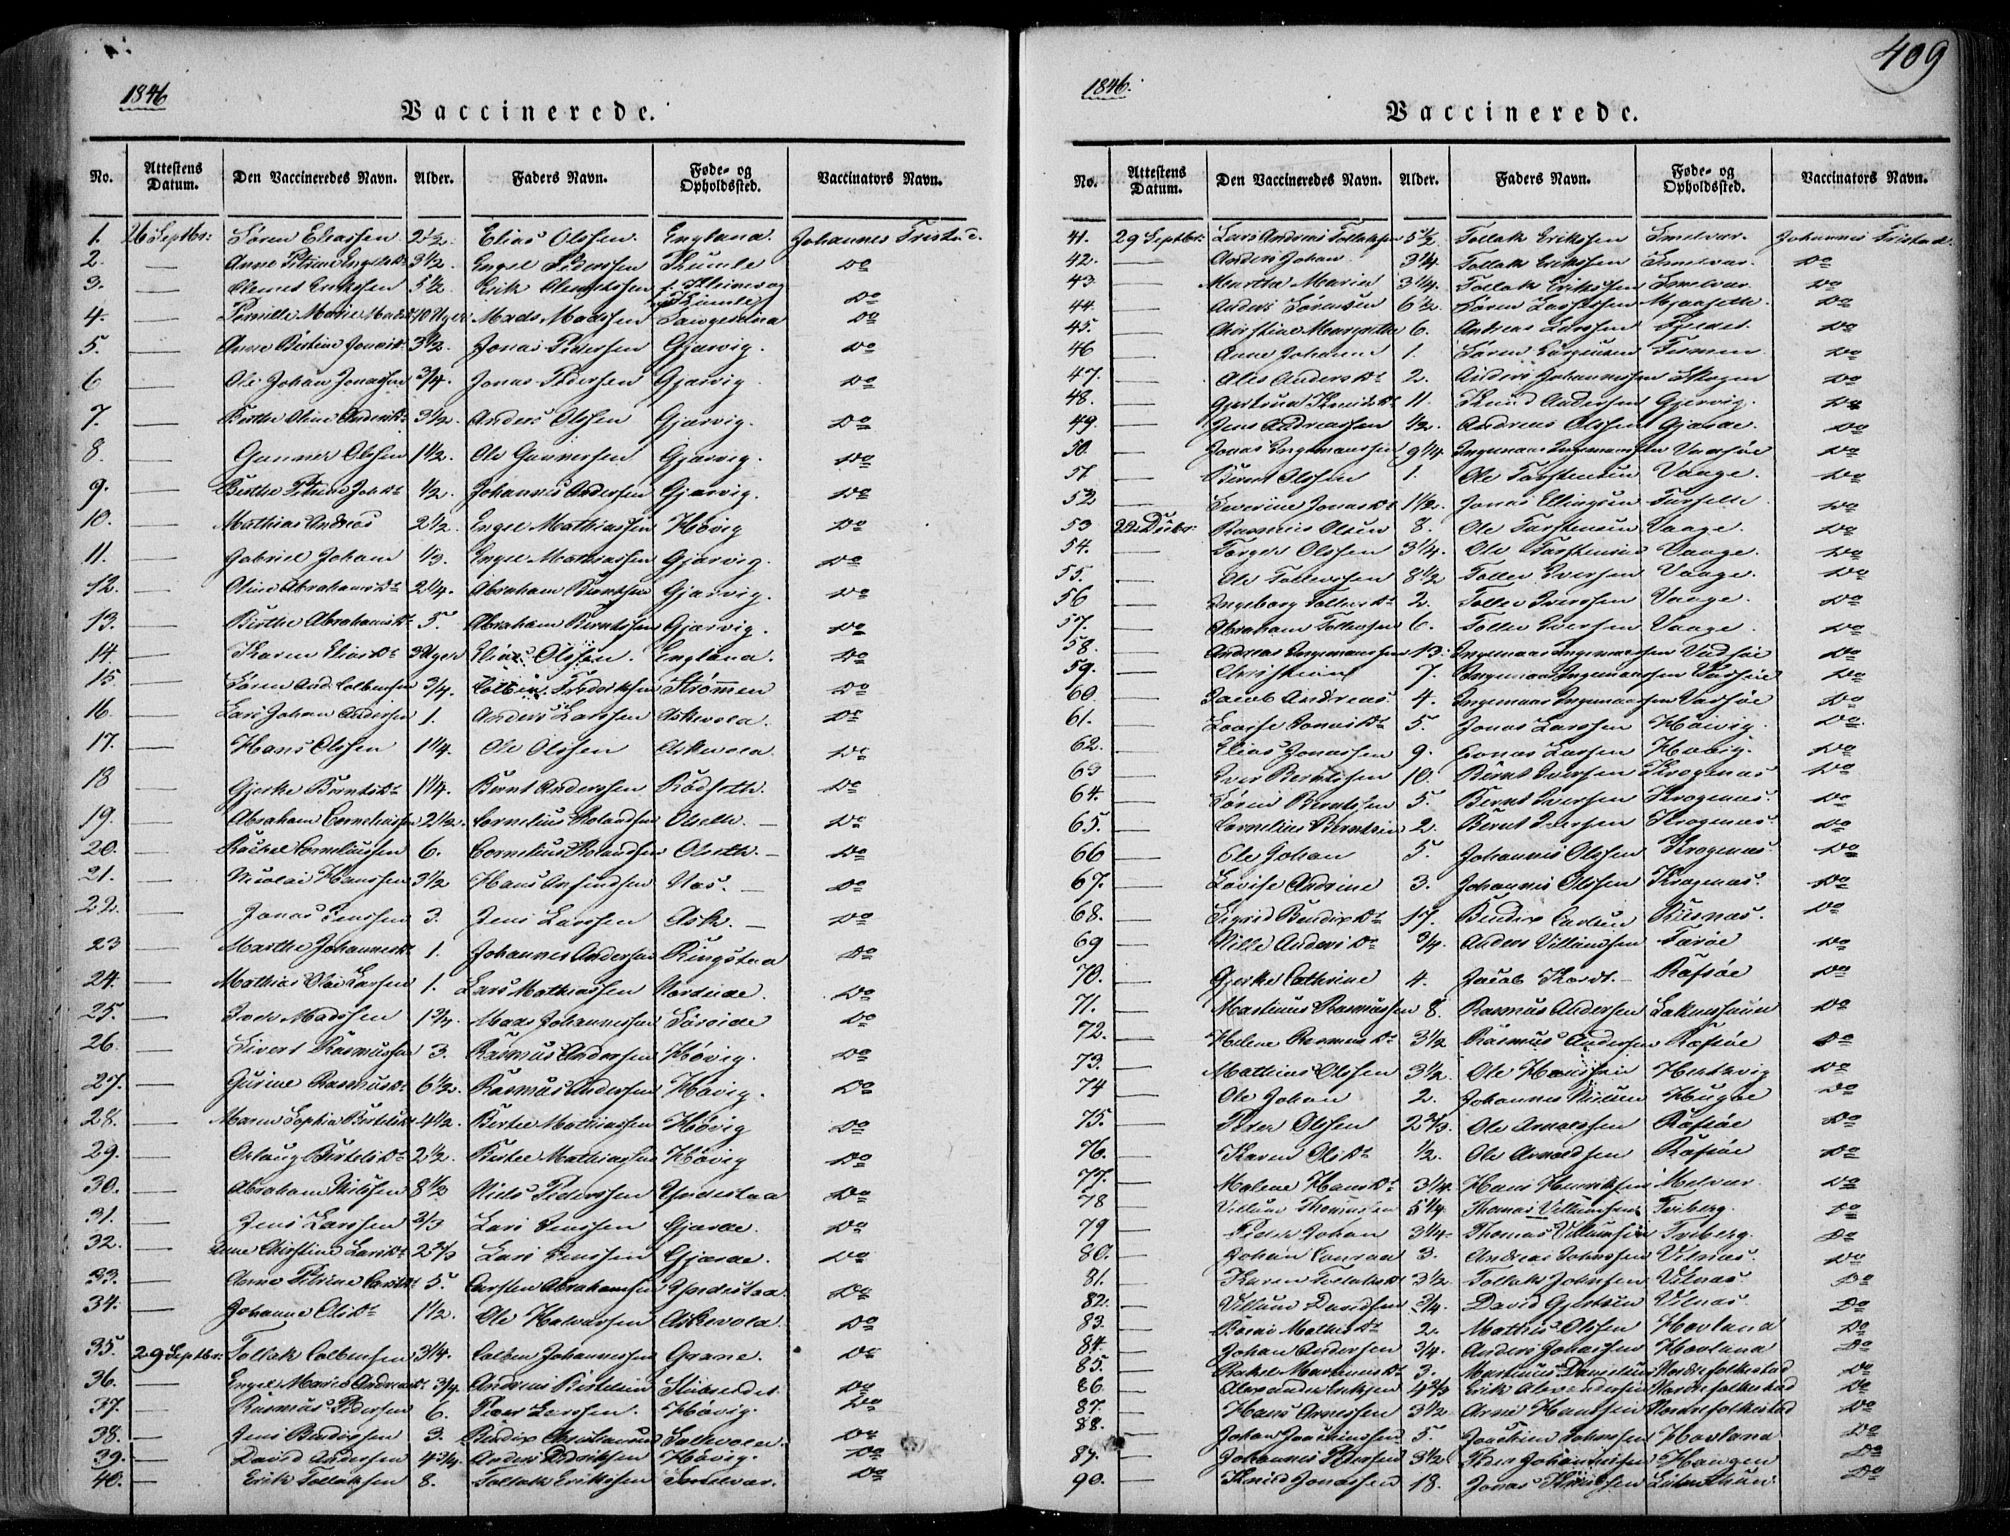 1846
Vaccinerede.
No. Attestens Datum. Den Vaccineredes Navn. Alder. Faders Navn. Føde- og Opholdssted. Vaccinators Navn.
1. 26 Septbr: Søren Eliassen 2 1/2. Elias Olssen. England. Johannes
2. — Anne Petrine Engels Dt 3 1/2. Engel Pederssen Do
3. — Clemet Erikssen 5 1/2. Erik Clemetssen Do
4. — Pernille Marie Mads 40 Uger Mads Madssen Do
5. — Anne Bertine Jonas Dt 3 1/2. Jonas Pederssen Gjærvig. Do
6 — Ole Johan Jonassen 3/4. Jonas Pederssen Gjærvig. Do
7. — Berthe Oline Anders Dt 3 1/2. Anders Olssen Gjærvig. Do
8. — Gunner Olssen 1 1/2. Ole Gunnerssen Gjærvig. Do
9. — Berthe Petrine Joh: Dt 1/2. Johannes Anderssen Gjærvig. Do
10. — Mathias Andreas 2 1/2. Engel Mathiassen Høvig Do
11. — Gabriel Johan 1/3. Engel Mathiassen Gjærvig. Do
12. — Oline Abrahams Dt 2 1/4. Abraham Berntssen Gjærvig. Do
13. — Berthe Abrahams Dt 5. Abraham Berntssen Gjærvig. Do
14. — Karen Elias Dt 3 Uger Elias Olssen. England. Do
15. — Søren And: Colbensen 3/4. Colben Fredrikssen Strømmen Do
16. — Lars Johan Anderssen 1. Anders Larssen Askevold. Do
17. — Hans Olssen 1 1/4. Ole Olssen Askevold. Do
18 — Gjerke Bernts Dt 1 1/4. Bernt Anderssen Rødseth. Do
19. — Abraham Corneliussen 2 1/2. Cornelius Rolandsen Olseth. — Do
20. — Rachel Corneliussen 6. Cornelius Rolandsen Olseth. — Do
21. — Nicolai Hanssen 3 1/2 Hans Nas. — Do
22. — Jonas Jenssen 3. Jens Larssen Ask. — Do
23 — Marthe Johannes Dt 1. Johannes Anderssen Ringstad Do
24. — Mathias Olai Larsen 1. Lars Mathiassen Nordeide. Do
25. — Iver Madssen 1 3/4. Mads Johannessen Do
26. — Sivert Rasmussen 3. Rasmus Anderssen Høvig. Do
27. — Gurine Rasmus Dt 6 1/2. Rasmus Anderssen Høvig. Do
28. — Maren Sophia Bertels Dt 4 1/2. Bertel Mathiassen Høvig Do
29. — Bertels Dt 2 1/2. Bertel Mathiassen Høvig Do
30. — Abraham Nilssen 8 1/2 Niels Pederssen Yndestad Do
31. — Jens Larssen 2/3 Lars Jenssen Gjærde. Do
32. — Anne Christine Lars Dt 2 2/3 Lars Jenssen Gjærde. Do
33. — Anne Petrine Carst Dt 5. Carsten Abrahamsen Yndestad. Do
34. — Johanne Ols Dt 1 1/2. Ole Halvorssen Askevold. Do
35. 29 Septbr: Tollak Colbensen 3 1/4. Colben Johannessen Grane. Do
36. — Engel Marie Andreas Dt 3/4. Andreas Bertelsen Do
37. — Rasmus Pederssen 6. Peder Larssen. Høvig. Do
38. — Jens Bendixsen 3. Bendix Christiansen Do
39. — David Anderssen 4 3/4. Anders Høvig. Do
40. — Erik Tollakssen 8. Tollak Erikssen Smelvær. Do
409
1846.
Vaccinerede.
No. Attestens Datum. Den Vaccineredes Navn. Alder. Faders Navn. Føde- og Opholdssted. Vaccinators Navn.
41. 29 Septbr: Lars Andreas Tollakssen 5 1/2. Tollak Erikssen Smelvær. Johannes
42. — Anders Johan 3 1/4. Tollak Erikssen Smelvær. Do
43. — Martha Maria 3 1/4. Tollak Erikssen Smelvær. Do
44. — Anders Sørensen 6 1/2. Søren Do
45. — Christine Margrethe 6. Andreas Larssen Do
46 — Anne Johanne 1. Søren Do
47. — Ales Anders Dt 2. Anders Johannessen Skogen Do
48. — Gjertrud Knuds Dt 11. Knud Anderssen Gjervig. Do
49. — Jens Andreassen 1/2. Andreas Olssen Gjærde. Do
50. — Jonas Ingemanssen 9 1/4. Ingeman Ingemanssen Værøe Do
51. — Bernt Olssen 1. Ole Torstensen Vaage. Do
52 — Severine Jonas Dt 1 1/2. Jonas Ellingsen Do
53 22 Decbr: Rasmus Olsen 8. Ole Torstensen Vaage. Do
54. — Torger Olssen 3 1/4. Ole Torstensen Vaage. Do
55. — Ole Tollevssen 8 1/2 Tollev Iverssen Vaage. Do
56 — Ingeborg Tollevs Dt 2. Tollev Iverssen Vaage. Do
57. — Abraham Tollevssen 6. Tollev Iverssen Vaage. Do
58. — Andreas Ingemanssen 13. Ingeman Ingemanssen Værøe Do
59. — Christian 7. Ingeman Ingemanssen Værøe Do
60. — Jacob Andreas 4. Ingeman Ingemanssen Værøe Do
61. — Lovise Jonas Dt 5. Jonas Larssen Høivig. Do
62. — Elias Jonassen 9. Jonas Larsen Høvig. Do
63 — Iver Berntssen 10. Bernt Iverssen Krogenæs Do
64. — Søren Berntssen 5. Bernt Iverssen Krogenæs. Do
65. — Cornelius Berntsen 2. Bernt Iverssen Krogenæs. Do
66 — Ole Johan 5. Johannes Olssen Krogenæs. Do
67. — Lovise Andrine 3. Johannes Olssen Krogenæs. Do
68. — Sigrid Bendix Dt 17. Bendix Risnæs. Do
69 — Nille Anders Dt 3/4. Anders Villumssen Do
70. — Gjerke Cathrine 4. Jacob Kordt. — Rafsøe Do
71. — Martinus Rasmussen 8. Rasmus Anderssen Do
72. — Helene Rasmus Dt 3 1/2 Rasmus Anderssen Rafsøe Do
73. — Mathias Olssen 3 1/2. Ole Hanssen Do
74 — Ole Johan 2. Johannes Nielsen Hugøe Do
75. — Peder Olssen 2 2/3. Ole Arnoldssen Rafsøe Do
76. — Karen Ols Dt 1/2. Ole Arnoldssen Rafsøe Do
77. — Malene Hans Dt 3 1/4. Hans Henrikssen Melvær. Do
78 — Villum Thomassen 5 1/4. Thomas Villumssen Triberg. Do
79 — Peder Johan 3 1/4. Thomas Villumssen Triberg. Do
80. — Johan Conrad 3. Andreas Johnssen Vilnæs. Do
81. — Karen Tollaks Dt 3 1/2. Tollak Johnsen Vilnæs. Do
82. — Villum Davidssen 3/4. David Gjertsen Vilnæs. Do
83. — Mathis Dt 2. Mathis Olssen Havland Do
84. — Johan Anderssen 3/4. Anders Jonassen Havland Do
85. — Rakel Martinus Dt 3. Martinus Danielsen Nordrefolkestad Do
86. — Alexander Erikssen 4 2/3 Erik Alexandersen Nordrefolkestad Do
87. — Hans Arnessen 3 1/2. Arne Hanssen Nordrefolkestad Do
88. — Johan Joachimssen 5. Joachim Johnssen Havland. Do
89. — Johannes Pederssen 3 1/2 Peder Johannessen Haugen Do
90. — Knud Jonassen 18. Jonas Knudssen Do